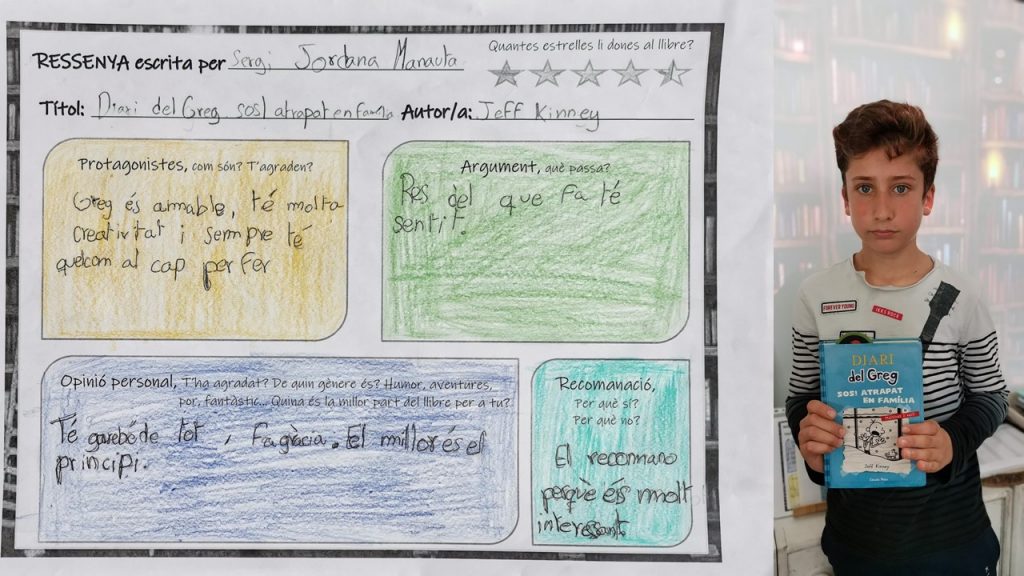 Quantes estrelles li dones al llibre?
RESSENYA escrita per Sergi Jordana Manauta
Títol: Diari del Greg sos! atrapat en familia Autor/a: Jeff Kinney
Protagonistes, com són? T'agraden?
Greg és amable, té molta
creativitat i sempre té
quelcom al cap per fer
Argument, què passa?
Res dèl que fa té
sentit.
Opinió personal, T'ha agradat? De quin gènere és? Humor, aventures,
por, fantàstic... Quina és la millor part del llibre per a tu?
Té gairebé de tot, Fa gràcia. El millor és el
principi.
Recomanació,
Per què sí?
Per què no?
El recomano
perquè és molt
interessant.
FOREVER YOUNG
DIARI
del Greg
SOS! ATRAPAT
EN FAMÍLIA
Jeff Kinney